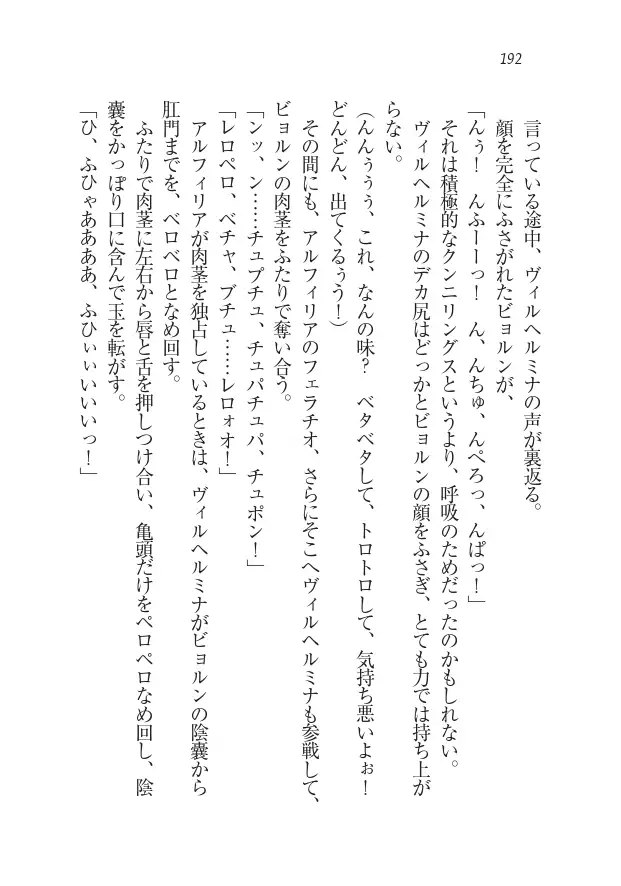 192
言っている途中、ヴィルヘルミナの声が裏返る。
顔を完全にふさがれたビョルンが、
「んぅ！　んふーーっ！　ん、んちゅ、んぺろっ、んぱっ！」
それは積極的なクンニリングスというより、呼吸のためだったのかもしれない。
ヴィルヘルミナのデカ尻はどっかとビョルンの顔をふさぎ、とても力では持ち上が
らない。
（んんぅぅぅ、これ、なんの味？　ベタベタして、トロトロして、気持ち悪いよぉ！
どんどん、出てくるぅう！）
その間にも、アルフィリアのフェラチオ、さらにそこへヴィルヘルミナも参戦して、
ビョルンの肉茎をふたりで奪い合う。
「ンッ、ン……チュプチュ、チュパチュパ、チュポン！」
「レロペロ、ベチャ、ブチュ……レロォオ！」
アルフィリアが肉茎を独占しているときは、ヴィルヘルミナがビョルンの陰嚢から
肛門までを、ベロベロとなめ回す。
ふたりで肉茎に左右から唇と舌を押しつけ合い、亀頭だけをペロペロなめ回し、陰
嚢をかっぽり口に含んで玉を転がす。
「ひ、ふひゃああああ、ふひぃぃいいいっ！」